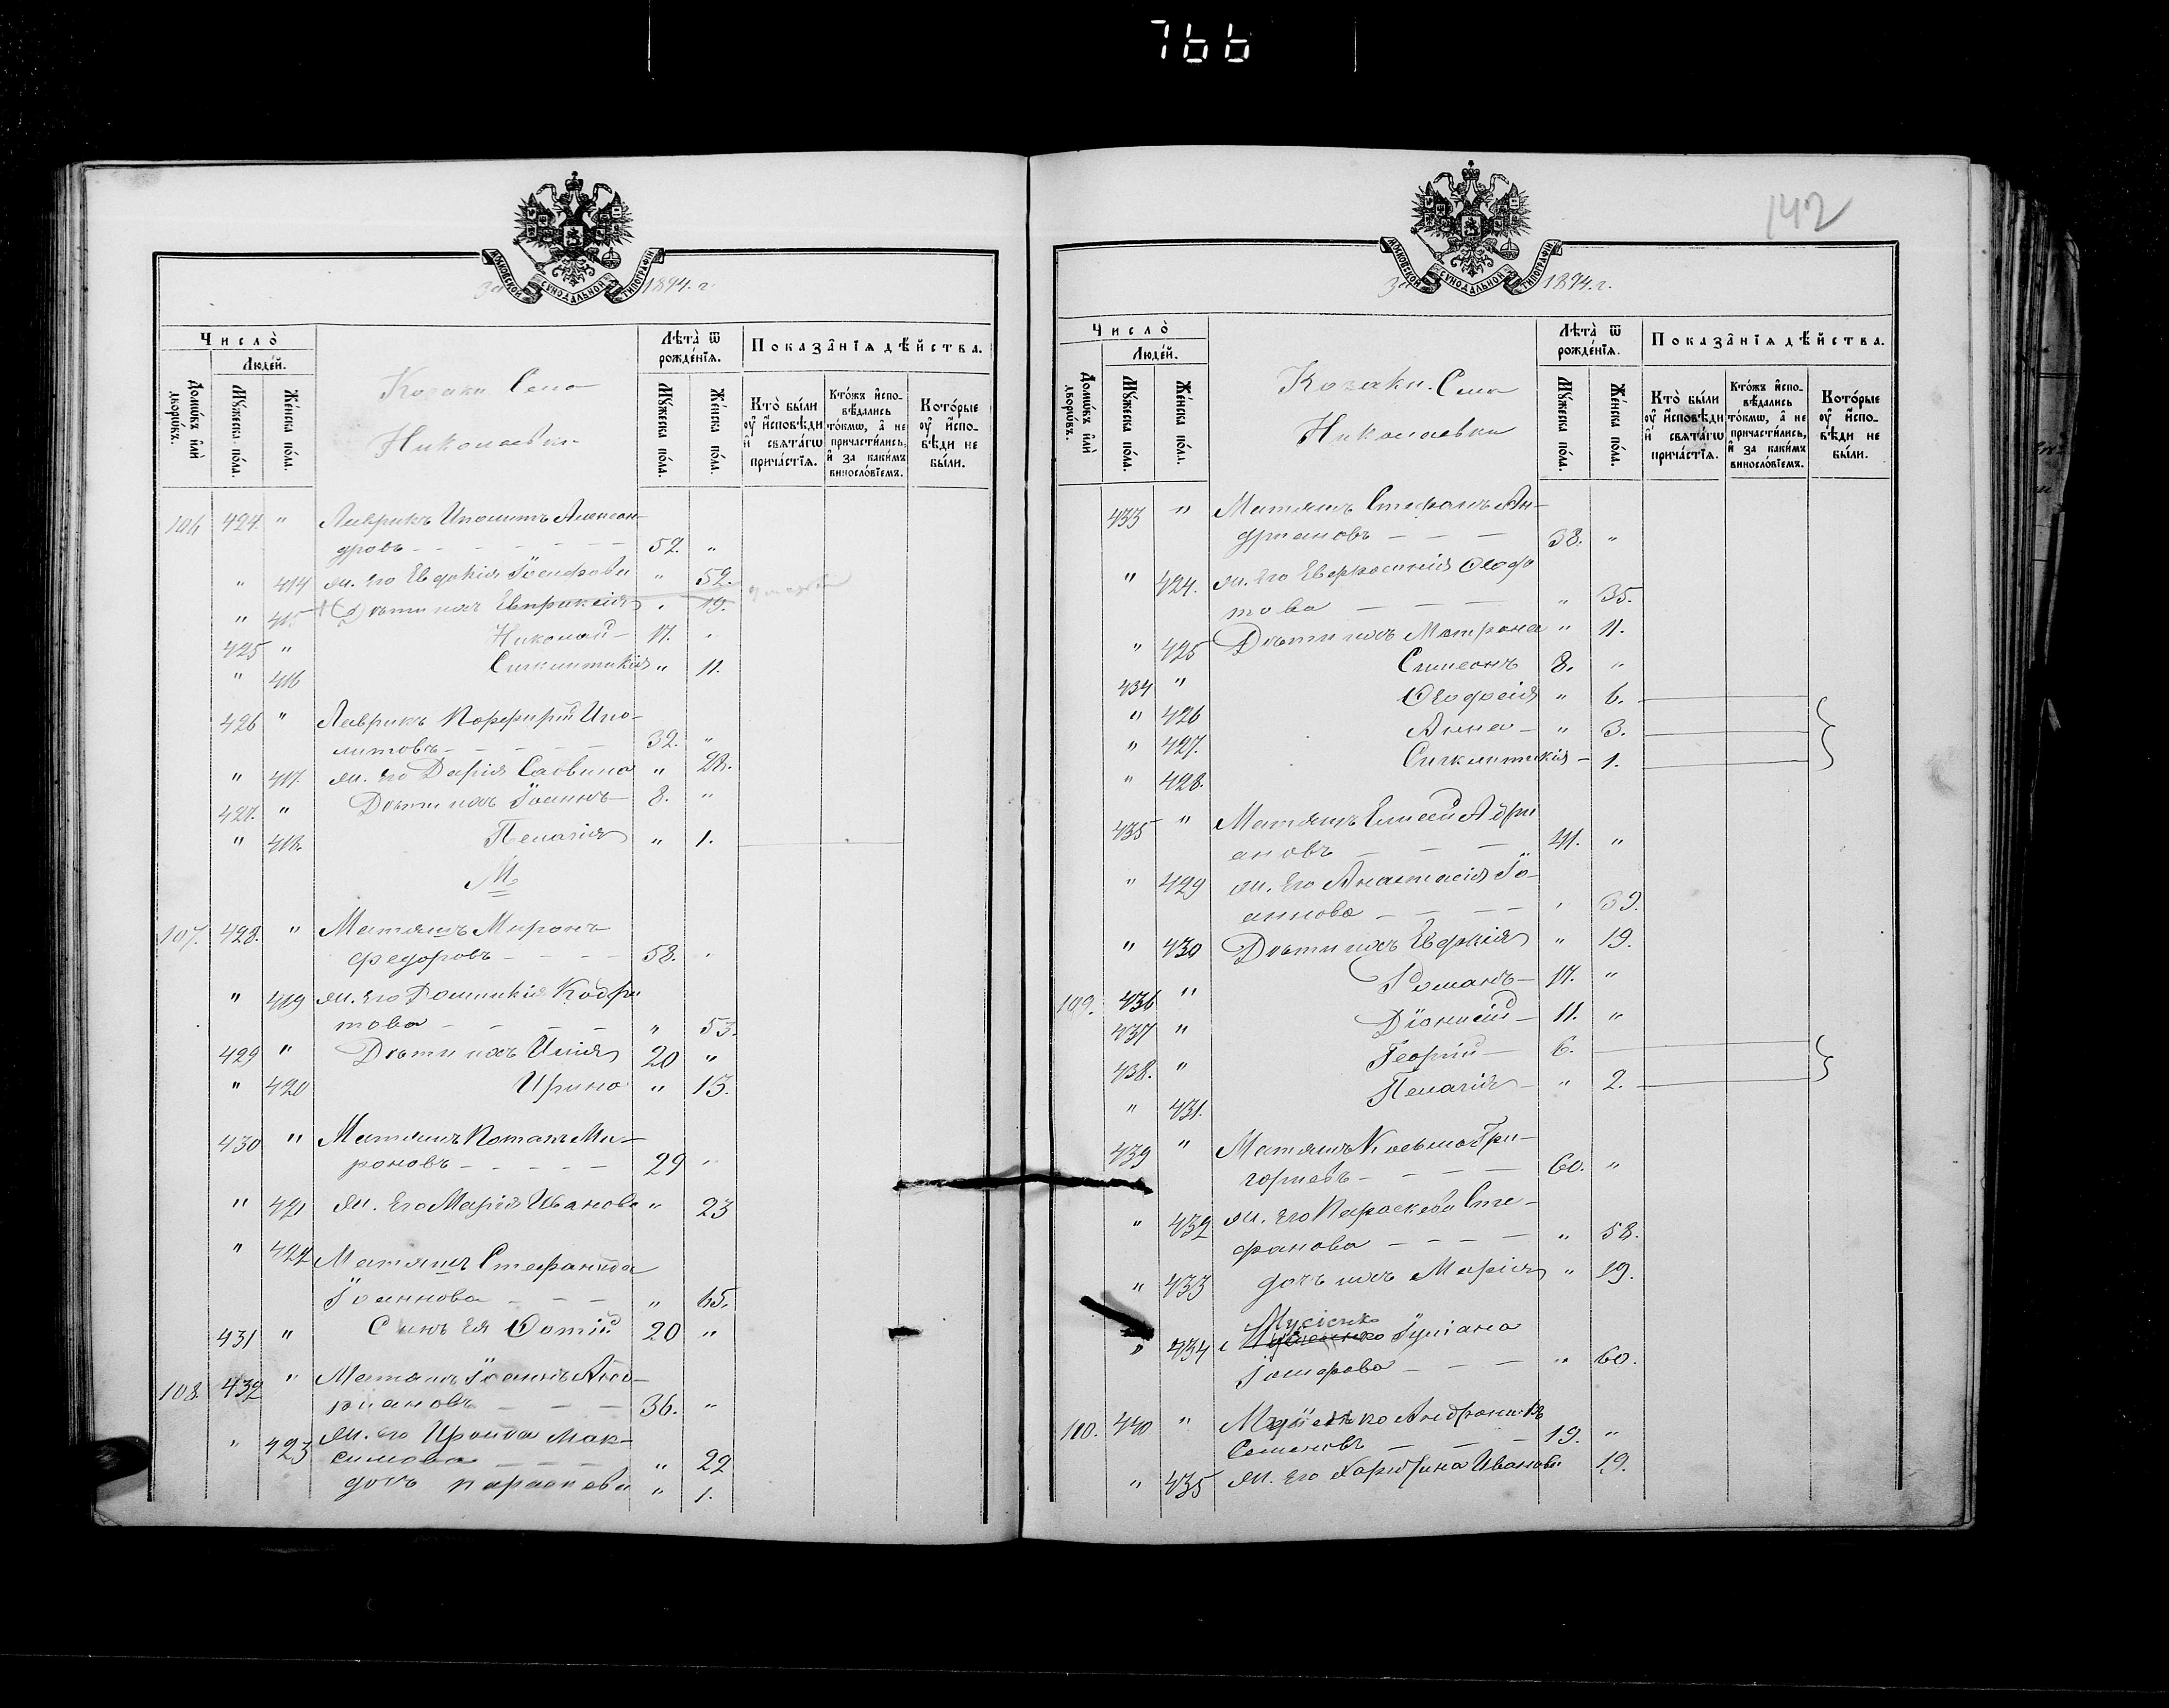 766
МОСКОВСКОЙ СѴНОДАЛЬНОЙ ТИПОГРАФІИ
за 1894. г.
Число̀
Люде́й.
Домѡ́въ и҆лѝ дворѡ́въ.
Мꙋ́жеска по́ла.
Же́нска по́ла.
Козаки Села
Николаевки
Лѣта̀ ѿ рожде́нїѧ.
Мꙋ́жеска по́ла.
Же́нска по́ла.
Показа̑нїѧ дѣ́йства.
Кто̀ бы́ли оу҆ и҆́сповѣди и҆ свѧта́гѡ прича́стїѧ.
Кто́жъ и҆спо-вѣ́дались то́кмѡ, а҆ не причасти́лись, и҆ за каки́мъ винослѡ́вїемъ.
Кото́рые оу҆ и҆́спо-вѣди не бы́ли.
106 424. " Лаврикъ Иполитъ Алексан-
дровъ - - - 52. "
" 414 ж. его Евдокія Іосифова " 52.
" 415 Дѣти ихъ Евпраксія " 19.
425 " Николай - 17. "
" 416 Синклитикія " 11.
426 " Лаврикъ Порфирій Ипо-
литовъ - - - 32. "
" 417. ж. его Дарія Саввина " 28.
427. " Дѣти ихъ Іоаннъ - 8. "
" 418. Пелагія " 1.
М.
107. 428. " Матяшъ Миронъ
Федоровъ - - - 58. "
" 419 ж. его Домникія Кодра
това - - - " 53.
429 " Дѣти ихъ Илія 20 "
" 420 Ирина " 13.
430 " Матяшъ Потапъ Ми-
роновъ - - - 29 "
" 421 ж. его Марія Иванова " 23
" 422 Матяшъ Стефанида
Іоаннова - - - " 65.
431 " Сынъ ея Фотій 20 "
108. 432 " Матяшъ Іоаннъ Анд-
ріановъ - - - 36. "
" 423 ж. его Ираида Мак-
симова - - - " 22
дочь Параскева " 1.
142
МОСКОВСКОЙ СѴНОДАЛЬНОЙ ТИПОГРАФІИ
за 1894. г.
Число̀
Люде́й.
Домѡ́въ и҆лѝ дворѡ́въ.
Мꙋ́жеска по́ла.
Же́нска по́л.
Козаки. Села
Николаевки
Лѣта̀ ѿ рожде́нїѧ.
Мꙋ́жеска по́ла.
Же́нска по́ла.
Показа̑нїѧ дѣ́йства.
Кто̀ бы́ли оу҆ и҆́сповѣди и҆ свѧта́гѡ прича́стїѧ.
Кто́жъ и҆спо-вѣ́дались то́кмѡ, а҆ не причасти́лись, и҆ за каки́мъ винослѡ́вїемъ.
Кото́рые оу҆ и҆́спо-вѣди не бы́ли.
433 " Матяшъ Стефанъ Ан-
дріановъ - - - 38. "
" 424. ж. его Евфросинія Феофи
това - - - " 35.
" 425 Дѣти ихъ Матрона " 11.
434 " Симеонъ 8. "
" 426 Феодосія " 6.
" 427. Анна - " 3.
" 428. Синклитикія - 1.
435 " Матяшъ Елисей Адрі
ановъ - - - 41. "
" 429 ж. его Анастасія Іо-
аннова - - - " 39.
" 430 Дѣти ихъ Евдокія " 19.
109. 436 " Романъ - 17. "
437 " Діонисій - 11. "
438. " Георгій - 6.
" 431. Пелагія - " 2.
439 " Матяшъ Косьма Гри-
горіевъ - - - 60. "
" 432 ж. его Параскева Сте-
фанова - - - " 58.
" 433 дочь ихъ Марія " 19.
Мусіенко
" 434 Іуліана
Іосифова - - - " 60.
110. 440 " Андроникъ
Семеновъ - - - 19. "
" 435 ж. его Харитина Иванова 19.